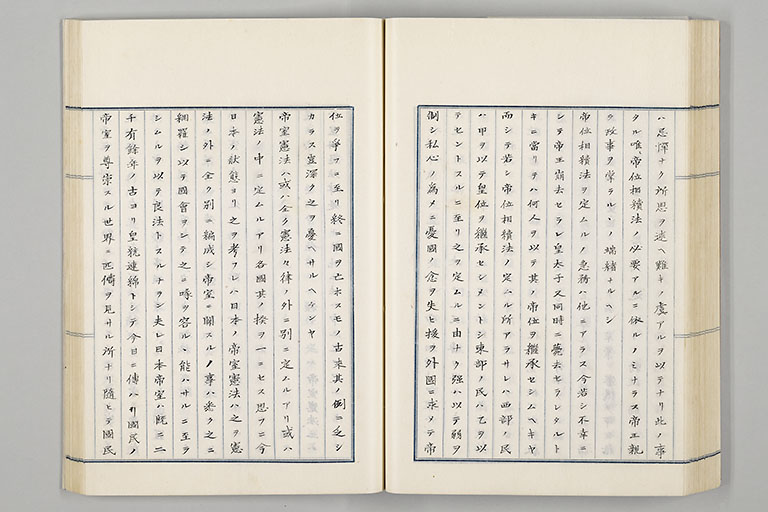 ハ忌憚ナク所思ヲ述ヘ難キノ虞アルヲ以テナリ此ノ事
タル唯、帝位相續法ノ必要アルニ依ルノミナラス帝王親
ク政事ヲ掌ラル丶ノ端緒ナルヘシ
帝位相續法ヲ定ムルノ急務ハ他ニアラス今若シ不幸ニ
シテ帝王崩去セラレ皇太子又同時ニ薨去セラレタルト
キニ當リテハ何人ヲ以テ其ノ帝位ヲ繼承セシムヘキヤ
而シテ若シ帝位相續法ノ定ムル所アラサレハ西部ノ民
ハ甲ヲ以テ皇位ヲ繼承セシメントシ東部ノ民ハ乙ヲ以
テセントスルニ至リ之ヲ定ムルニ由ナク强ハ以テ弱ヲ
制シ私心ノ爲メニ憂國ノ念ヲ失ヒ援ヲ外國ニ求メテ帝
位ヲ爭フニ至リ終ニ國ヲ亡ホスモノ古來其ノ例ニ乏シ
カラス豈深ク之ヲ憂ヘサルヘケンヤ
帝室憲法ハ或ハ全ク憲法々律ノ外ニ別ニ定ムルアリ或ハ
憲法ノ中ニ定ムルアリ各國其ノ揆ヲ一ニセス思フニ今
日本ノ狀態ヨリ之ヲ考フレハ日本ノ帝室憲法ハ之ヲ憲
法ノ外ニ全ク別ニ編成シ帝室ニ關スルノ事ハ悉ク之ニ
網羅シ以テ國會ヲシテ之ニ喙ヲ容ル丶能ハサルニ至ラ
シムルヲ以テ良法トスルナラン夫レ日本帝室ハ旣ニ二
千有餘年ノ古ヨリ皇統連綿トシテ今日ニ傳ハリ國民ノ
帝室ヲ尊崇スル世界ニ匹儔ヲ見サル所ナリ隨ヒテ國民